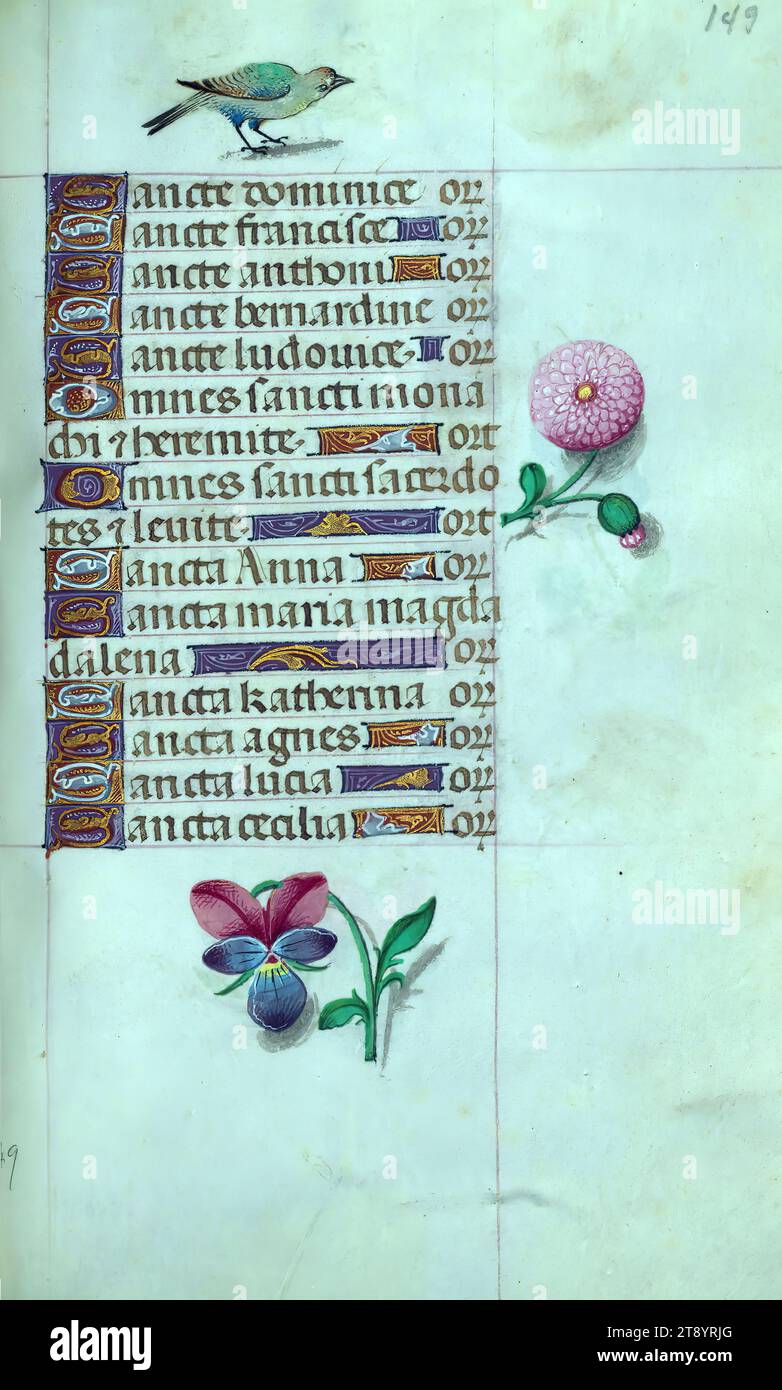 149
Sancte dominice or
Sancte francisce or
Sancte anthoni or
Sancte bernardine or
Sancte ludovice or
Omnes sancti mona
chi ⁊ heremite. ort
Omnes sancti sacerdo
tes ⁊ levite. ort
Sancta Anna or
Sancta maria magda
dalena or
Sancta katherina or
Sancta agnes or
Sancta lucia or
Sancta cecilia or
49
alamy
Image ID: 2T8YRJG
www.alamy.com